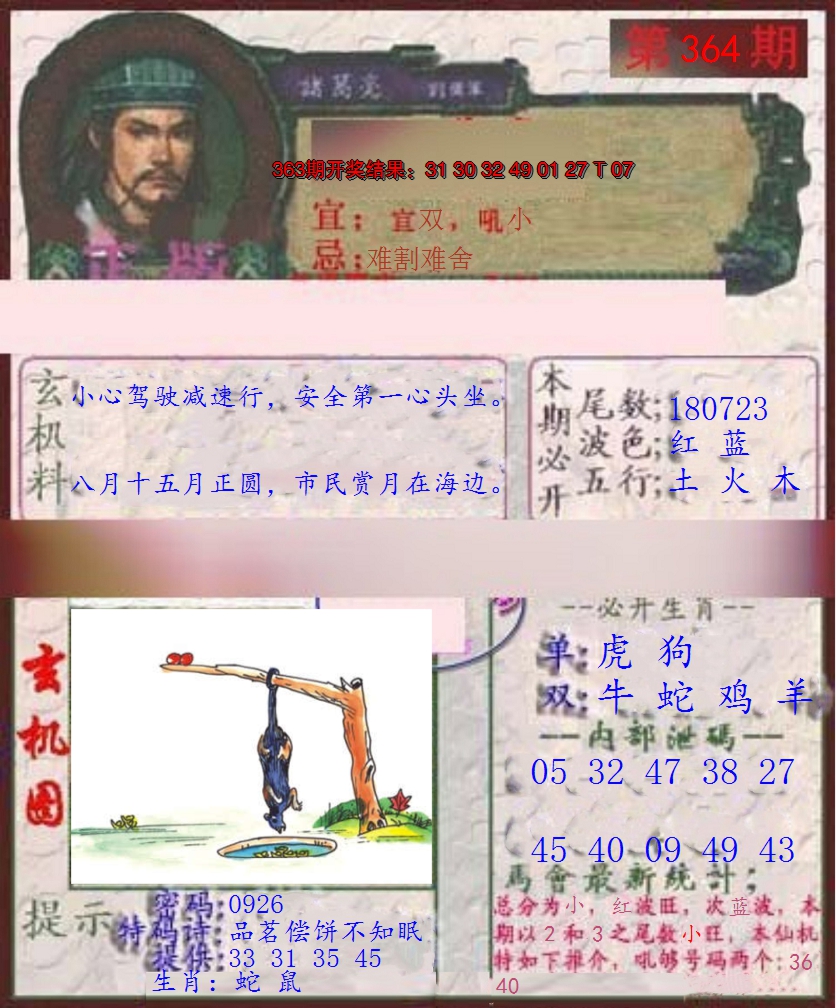 第364期
諸葛亮 劉備軍
363期开奖结果：31 30 32 49 01 27 T 07
宜：宜双，吼小
忌：难割难舍
正版
玄机料
小心驾驶减速行，安全第一心头坐。
八月十五月正圆，市民赏月在海边。
本期必开
尾数：180723
波色：红 蓝
五行：土 火 木
--必开生肖--
单：虎 狗
双：牛 蛇 鸡 羊
—内部泄碼—
05 32 47 38 27
45 40 09 49 43
玄机图
提示
密码：0926
特码诗：品茗偿饼不知眠
提供：33 31 35 45
生肖：蛇 鼠
馬會最新統計；
总分为小，红波旺，次蓝波，本
期以2和3之尾数小旺，本仙机
特如下推介，吼够号码两个：36
40